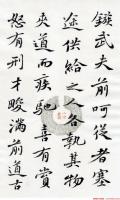 武夫前呵從者塞
途供給之人各執其物
夾道而疾馳喜有賞
怒有刑才畯滿前道古